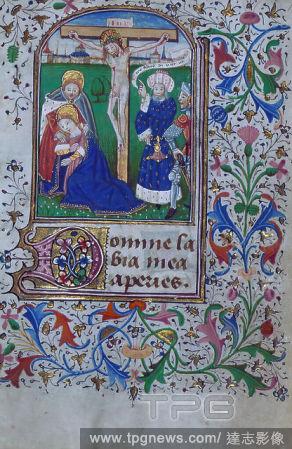 INRI
Domine la
bia mea
aperies.
TPG
www.tpgnews.com / 達志影像